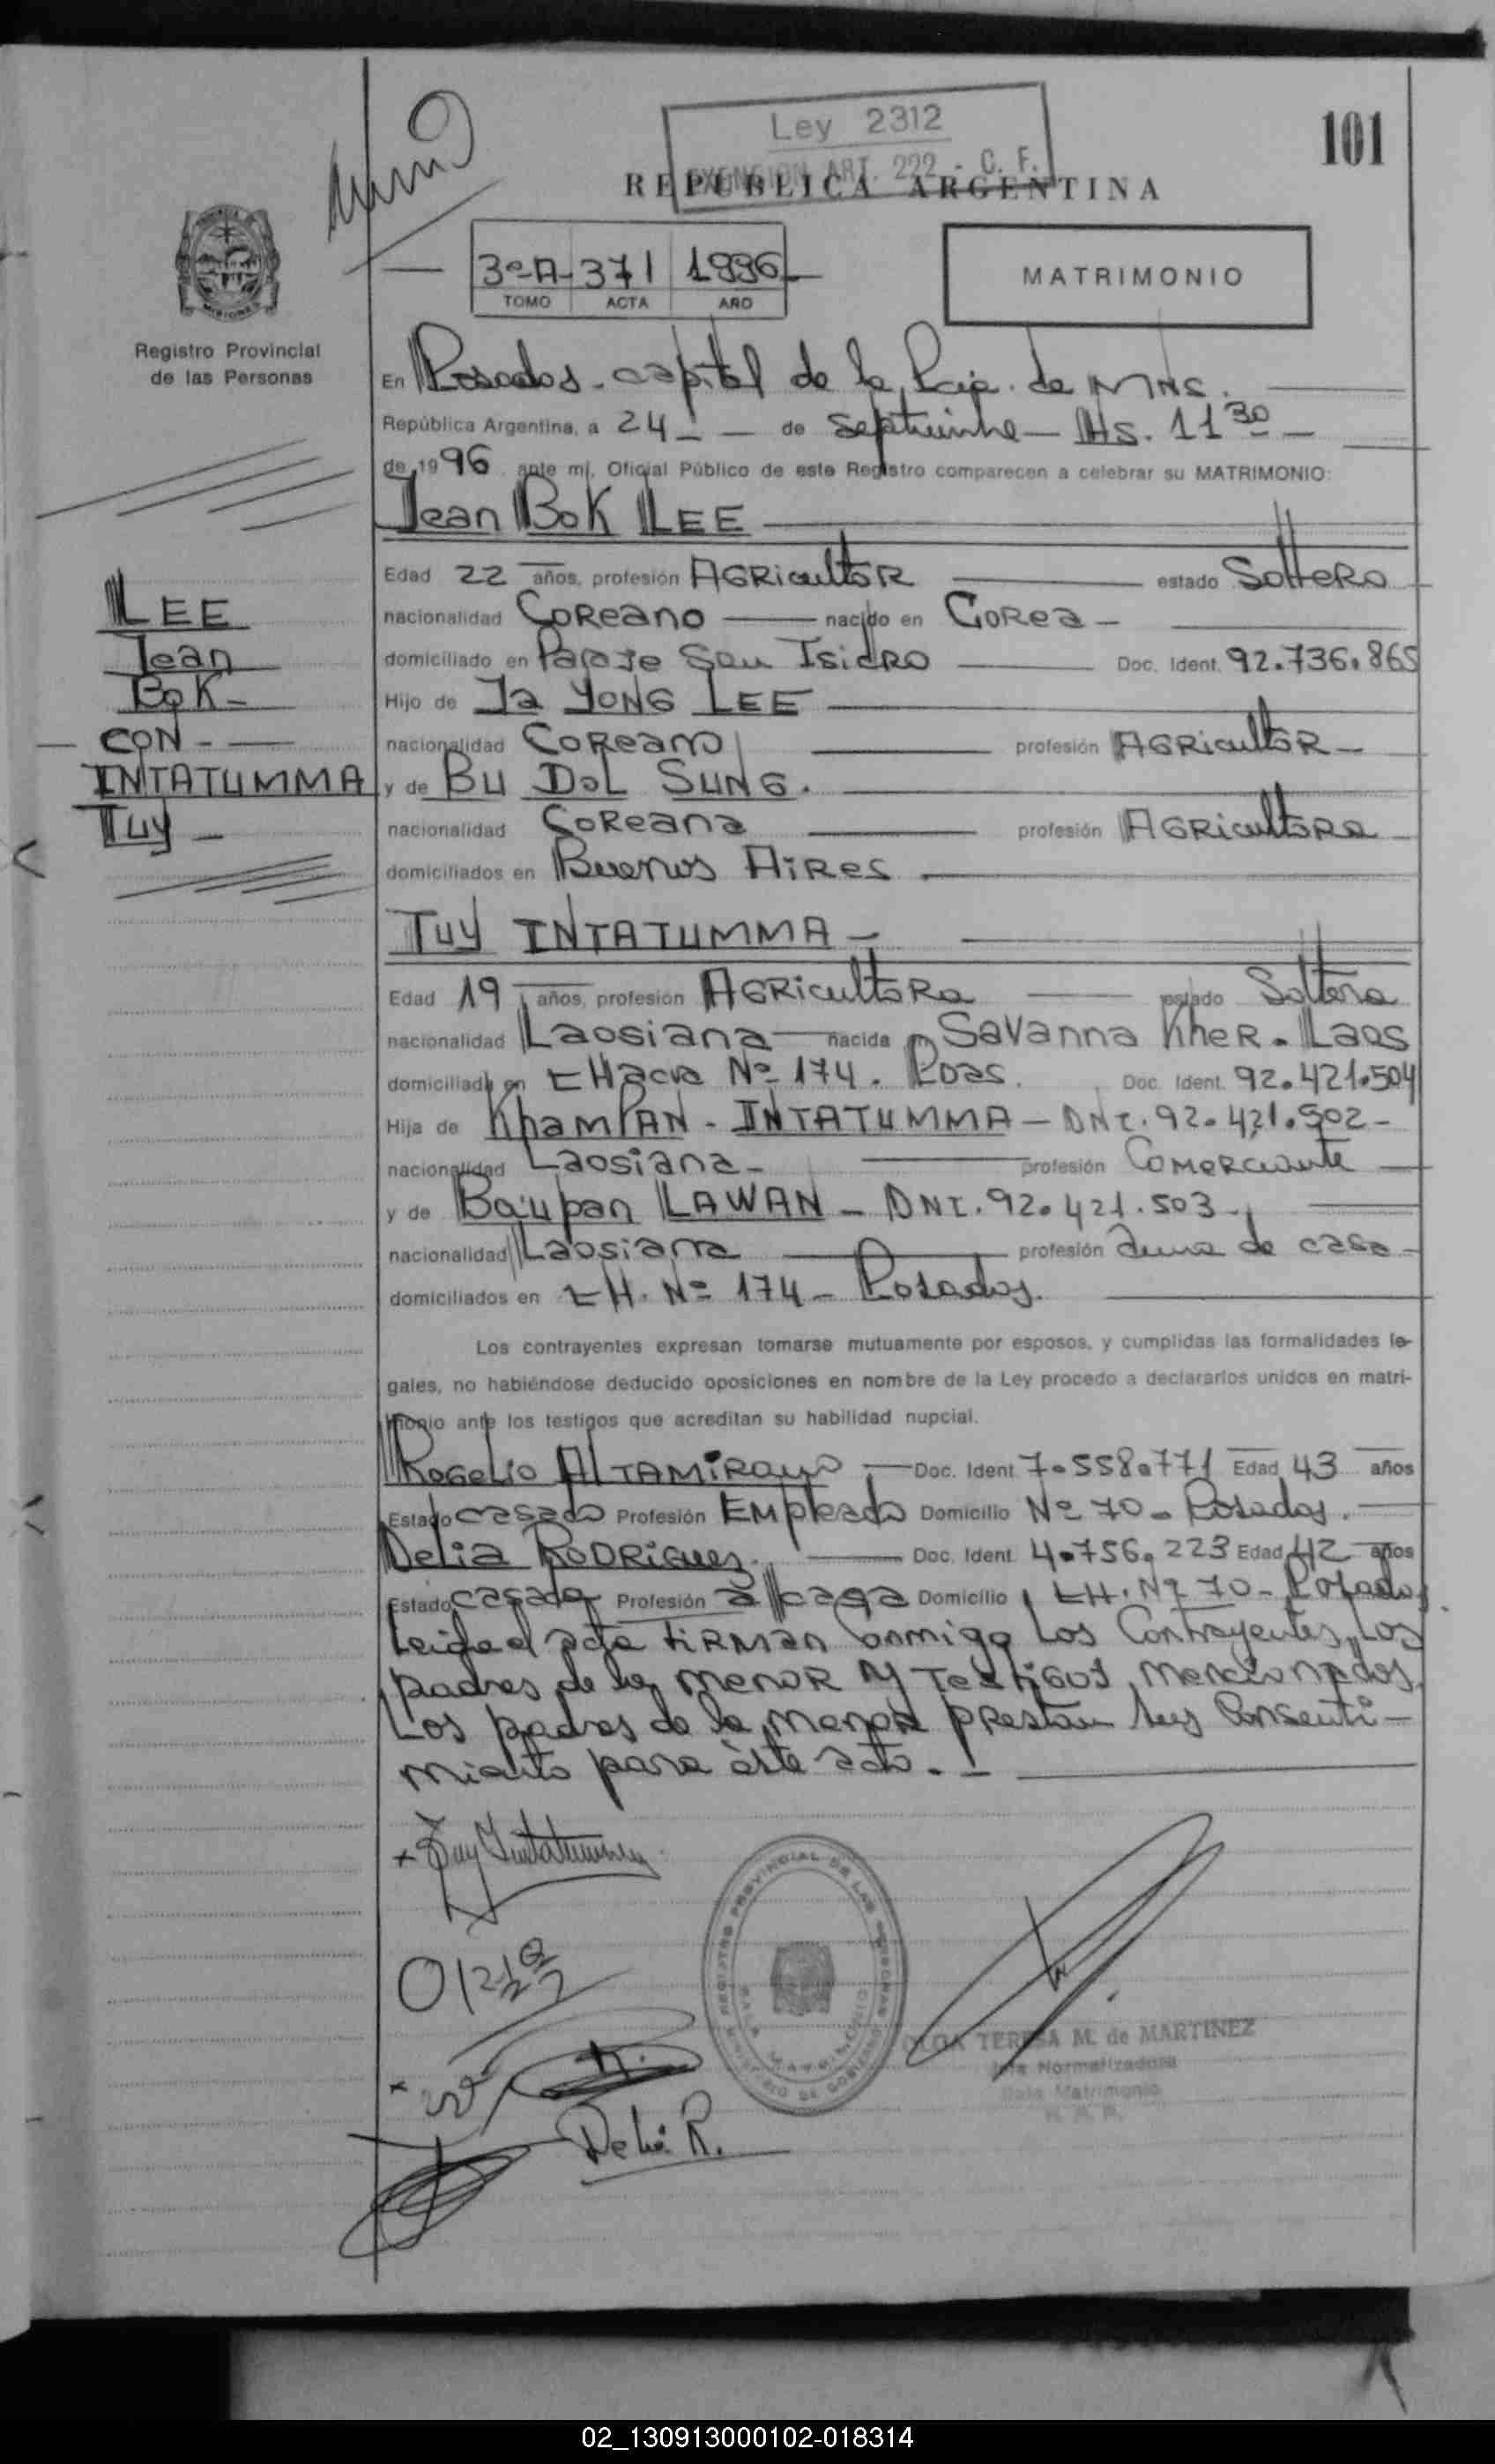 Ley 2312
EXENCION ART. 222 - C. F.
101
REPUBLICA ARGENTINA
3º-A- 371 1996
TOMO ACTA AÑO
MATRIMONIO
MISIONES
Registro Provincial
de las Personas
En Posadas - capital de la Pcia. de MNS.
República Argentina, a 24 - de septiembre - Hs. 11 30
de 1996 ante mí, Oficial Público de este Registro comparecen a celebrar su MATRIMONIO:
Jean Bok LEE
Edad 22 años, profesión AGRicultoR estado SolteRo
nacionalidad CoReano nacido en CoRea -
domiciliado en Paraje San IsidRo Doc. Ident. 92.736.865
Hijo de Ja YONG LEE
nacionalidad CoReano profesión AGRicultoR -
y de BU DOL SUNG.
nacionalidad CoReana profesión AGRicultoRa
domiciliados en Buenos AiRes
LEE
Jean
Bok -
CON -
INTATUMMA
Tuy -
Tuy INTATUMMA -
Edad 19 años, profesión AGRicultoRa estado Soltera
nacionalidad Laosiana nacida en Savanna KheR - Laos
domiciliada en CHacra Nº 174. Pdas. Doc. Ident. 92.421.504
Hija de KhamPAN - INTATUMMA - DNI. 92.421.502 -
nacionalidad Laosiana - profesión ComeRciante
y de Baupan LAWAN - DNI. 92.421.503 -
nacionalidad Laosiana profesión ama de casa -
domiciliados en CH. Nº 174 - Posadas.
Los contrayentes expresan tomarse mutuamente por esposos, y cumplidas las formalidades le-
gales, no habiéndose deducido oposiciones en nombre de la Ley procedo a declararlos unidos en matri-
monio ante los testigos que acreditan su habilidad nupcial.
Rogelio AlTAMiRano Doc. Ident. 7.558.771 Edad 43 años
Estado casado Profesión EMpleado Domicilio Nº 70 - Posadas.
Delia RODRiGuez. Doc. Ident. 4.756.223 Edad 42 años
Estado casada Profesión a/casa Domicilio CH. Nº 70 - Posadas
Leida el acta fiRMan conmigo Los Contrayentes, Los
padres de la menoR y Testigos mencionados.
Los padres de la menoR prestan su consenti-
miento para éste acto. -
x Tuy Intatumma
REGISTRO PROVINCIAL DE LAS PERSONAS
MINISTERIO DE GOBIERNO
SALA MATRIMONIO
OLGA TERESA M. de MARTINEZ
Jefa Normalizadora
Sala Matrimonio
R. P. P.
Delia R.
02_130913000102-018314